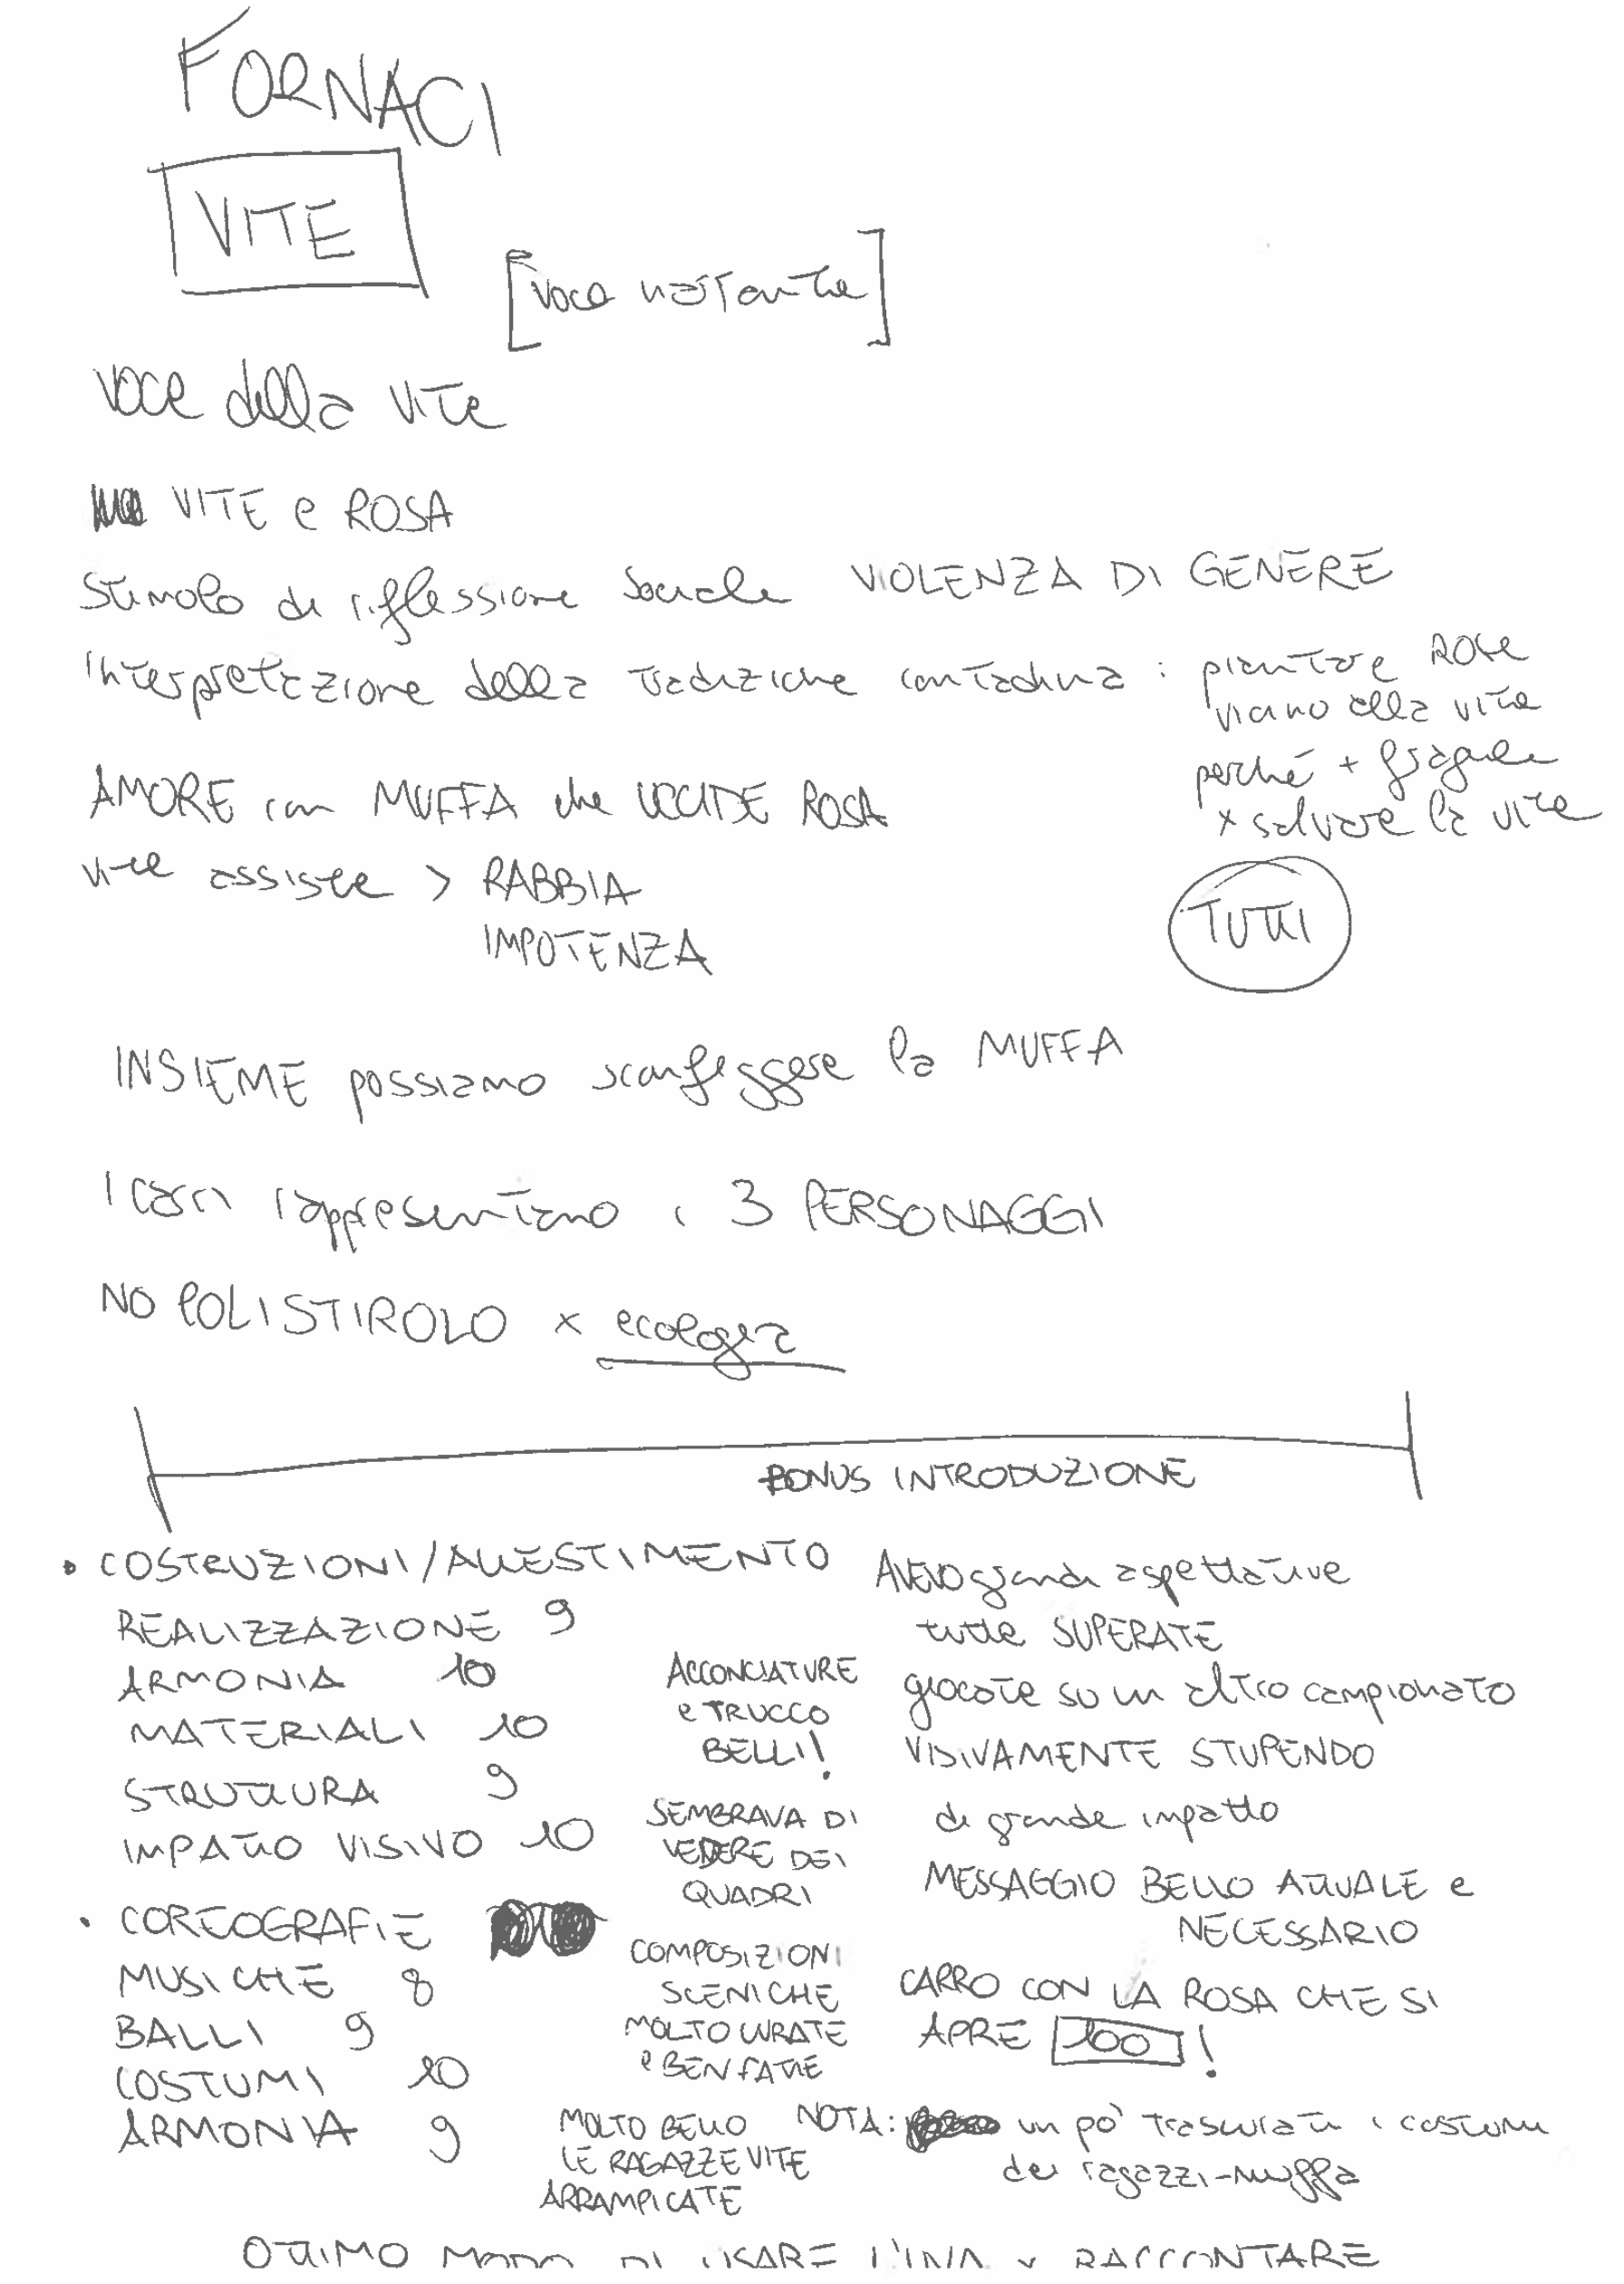 FORNACI
VITE
[voce narrante]
voce della vite
VITE e ROSA
Stimolo di riflessione sociale VIOLENZA DI GENERE
Interpretazione della tradizione contadina : piantare ROSE
vicino alla vite
perché + fragile
x salvare la vite
AMORE con MUFFA che UCCIDE ROSA
vite assiste > RABBIA
IMPOTENZA
TUTTI
INSIEME possiamo sconfiggere la MUFFA
I carri rappresentano i 3 PERSONAGGI
NO POLISTIROLO x ecologia
BONUS INTRODUZIONE
• COSTRUZIONI/ALLESTIMENTO
REALIZZAZIONE 9
ARMONIA 10
MATERIALI 10
STRUTTURA 9
IMPATTO VISIVO 10
• COREOGRAFIE
MUSICHE 8
BALLI 9
COSTUMI 10
ARMONIA 9
ACCONCIATURE
e TRUCCO
BELLI!
SEMBRAVA DI
VEDERE DEI
QUADRI
COMPOSIZIONI
SCENICHE
MOLTO CURATE
e BEN FATTE
MOLTO BELLO
LE RAGAZZE VITE
ARRAMPICATE
AVEVO grandi aspettative
tutte SUPERATE
giocate su un altro campionato
VISIVAMENTE STUPENDO
di grande impatto
MESSAGGIO BELLO ATTUALE e
NECESSARIO
CARRO CON LA ROSA CHE SI
APRE 100!
NOTA: un pò trascurati i costumi
dei ragazzi-muffa
OTTIMO MODO DI USARE L'UVA x RACCONTARE